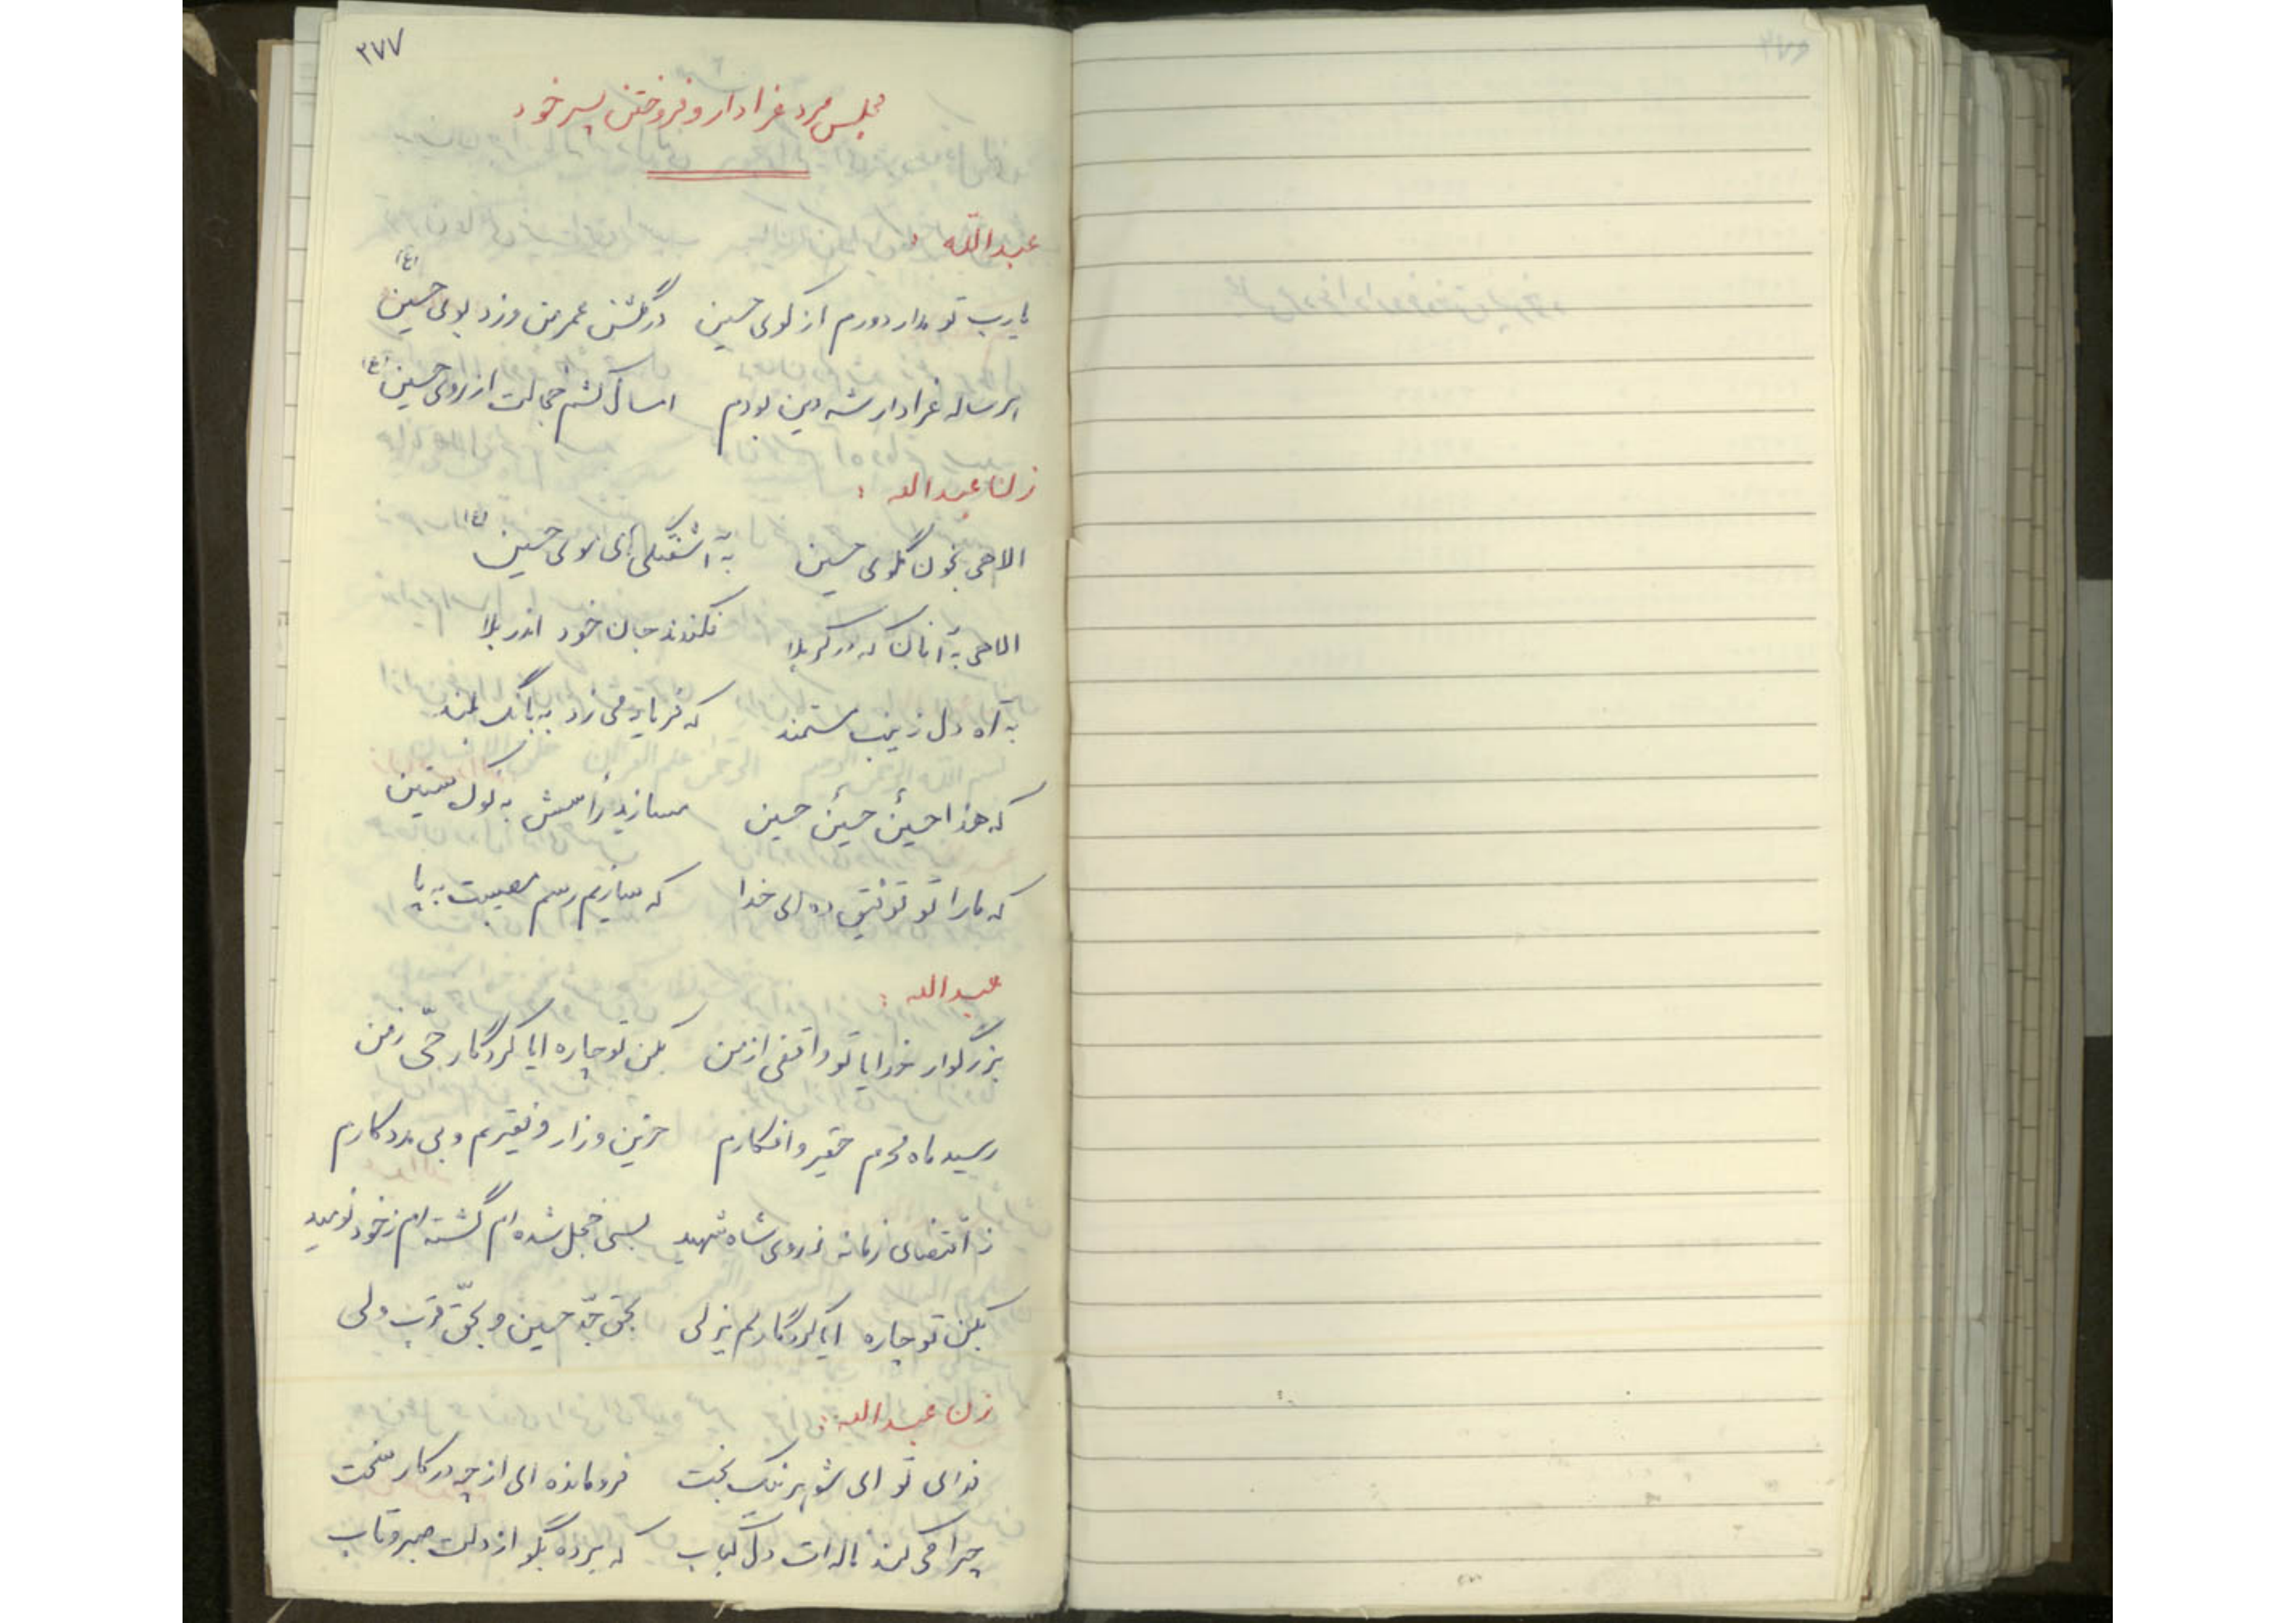 ۳۷۷
مجلس مرد عزادار و فروختن پسر خود
عبدالله :
یارب تو مدار دورم از کوی حسین در گلشن عمر من وزد بوی حسین (ع)
هر ساله عزادار شه دین بودم امسال کشم خجالت از روی حسین (ع)
زن عبدالله :
الاهی بخون گلوی حسین به آشفتگی های موی حسین (ع)
الاهی به آنان که در کربلا فکندند جان خود اندر بلا
به آه دل زینب مستمند که فریاد می زد به بانگ بلند
که هذا حسینٌ حسینٌ حسین مسازید رأسش به نوک سنین
که ما را تو توفیق ده ای خدا که سازیم رسم مصیبت به پا
عبدالله :
بزرگوار خدایا تو واقفی از من بکن تو چاره ایا کردگار حیّ زمن
رسید ماه محرم حقیر و افکارم حزین و زار و فقیرم و بی مددکارم
ز اقتضای زمانه ز روی شاه شهید بسی خجل شده ام گشته ام ز خود نومید
بکن تو چاره ایا کردگار لم یزلی بحق جدّ حسین و بحقّ قرب ولی
زن عبدالله :
ندای تو ای شوهر نیک بخت فرومانده ای از چه در کار سخت
چرا می کند ناله ات دل کباب که برده بگو از دلت صبر و تاب
۳۷۶